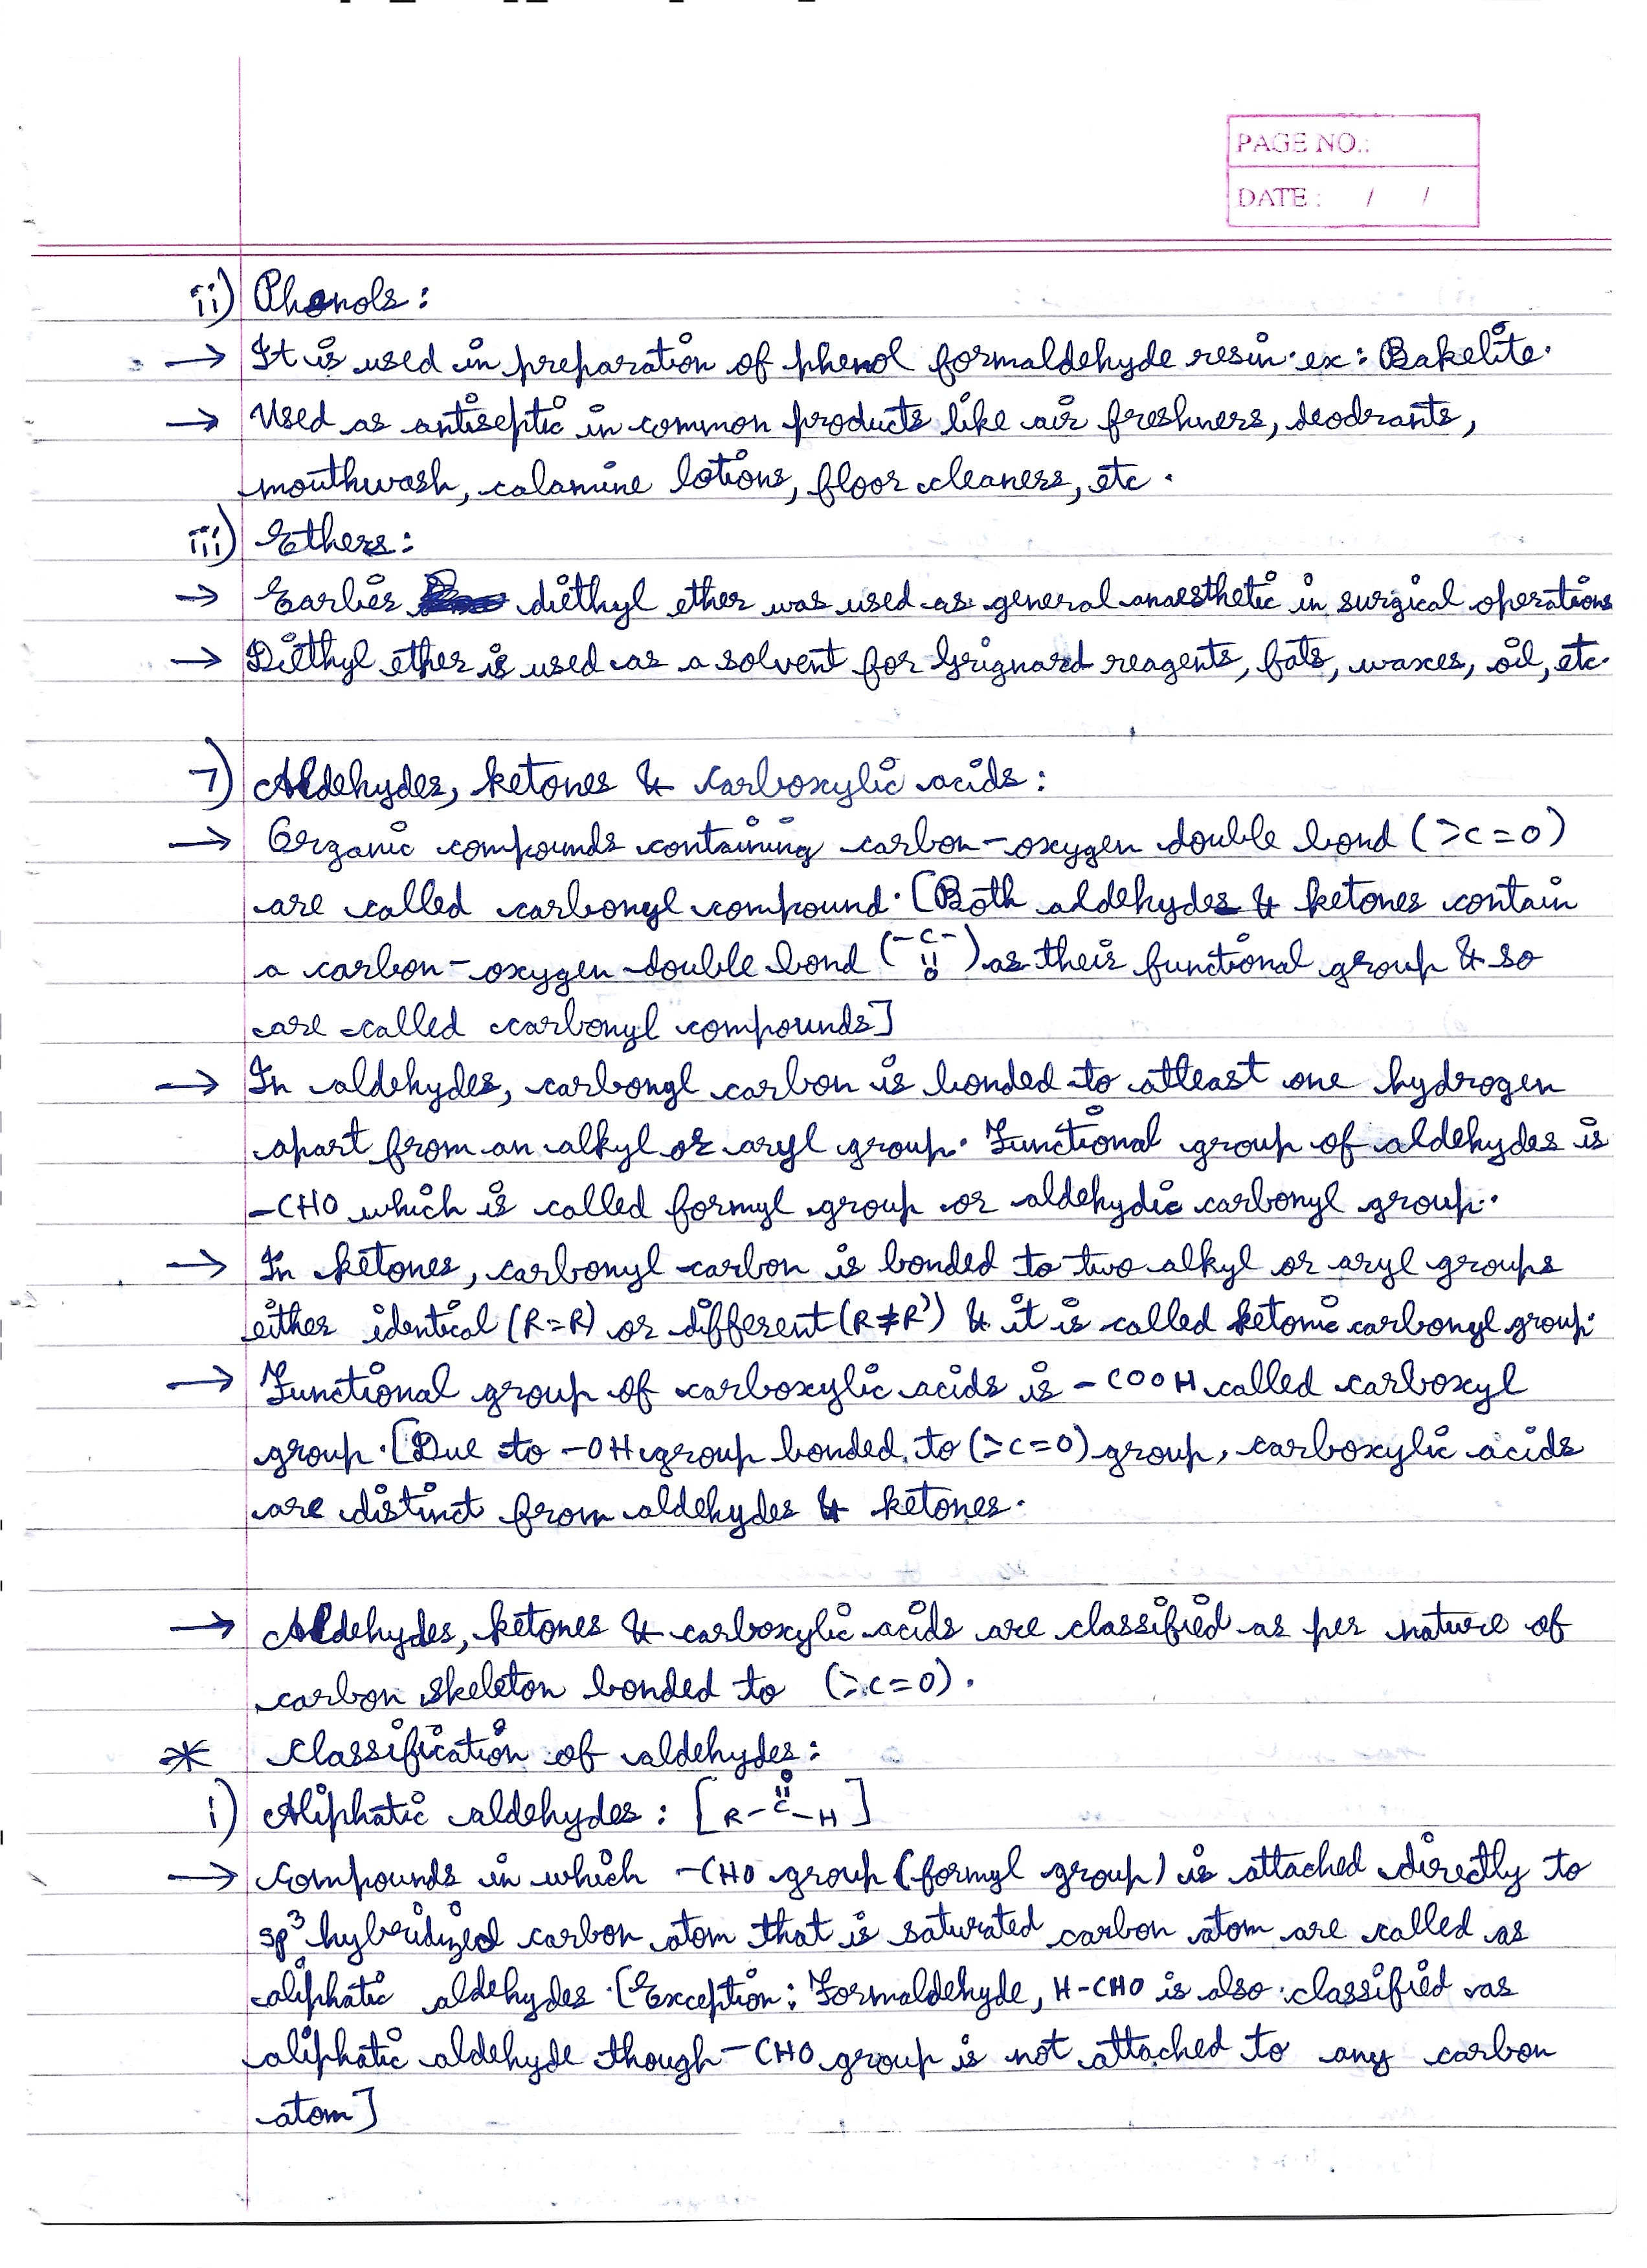 PAGE NO.:
DATE : / /
ii) Phenols :
→ It is used in preparation of phenol formaldehyde resin. ex : Bakelite.
→ Used as antiseptic in common products like air freshners, deodrants,
mouthwash, calamine lotions, floor cleaners, etc.
iii) Ethers :
→ Earlier diethyl ether was used as general anaesthetic in surgical operations
→ Diethyl ether is used as a solvent for Grignard reagents, fats, waxes, oil, etc.
7) Aldehydes, ketones & carboxylic acids :
→ Organic compounds containing carbon-oxygen double bond (>C=O)
are called carbonyl compound. [Both aldehydes & ketones contain
a carbon-oxygen double bond (-C-) as their functional group & so
||
O
are called carbonyl compounds]
→ In aldehydes, carbonyl carbon is bonded to atleast one hydrogen
apart from an alkyl or aryl group. Functional group of aldehydes is
-CHO which is called formyl group or aldehydic carbonyl group.
→ In ketones, carbonyl carbon is bonded to two alkyl or aryl groups
either identical (R=R) or different (R≠R') & it is called ketonic carbonyl group.
→ Functional group of carboxylic acids is -COOH called carboxyl
group. [Due to -OH group bonded to (>C=O) group, carboxylic acids
are distinct from aldehydes & ketones.
→ Aldehydes, ketones & carboxylic acids are classified as per nature of
carbon skeleton bonded to (>C=O).
* Classification of aldehydes :
O
||
i) Aliphatic aldehydes : [R-C-H]
→ Compounds in which -CHO group (formyl group) is attached directly to
sp³ hybridized carbon atom that is saturated carbon atom are called as
aliphatic aldehydes. [Exception : Formaldehyde, H-CHO is also classified as
aliphatic aldehyde though -CHO group is not attached to any carbon
atom]